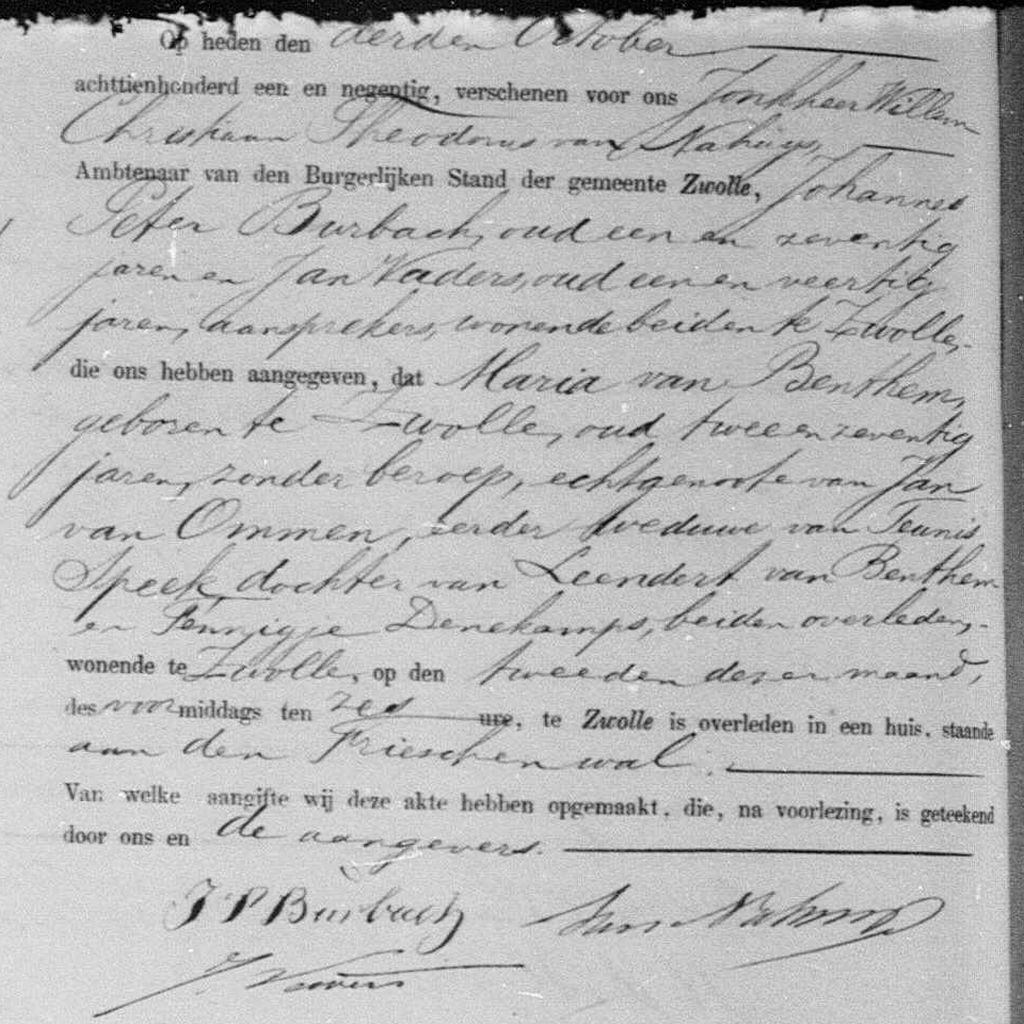 Op heden den derden October
achttienhonderd een en negentig, verschenen voor ons Jonkheer Willem
Christiaan Theodorus van Nahuys,
Ambtenaar van den Burgerlijken Stand der gemeente Zwolle, Johannes
Peter Burbach, oud een en zeventig
jaren en Jan Vaders, oud een en veertig
jaren, aansprekers, wonende beiden te Zwolle,
die ons hebben aangegeven, dat Maria van Benthem,
geboren te Zwolle, oud twee en zeventig
jaren, zonder beroep, echtgenoote van Jan
van Ommen, eerder weduwe van Teunis
Speek, dochter van Leendert van Benthem
en Fennigje Denekamps, beiden overleden,
wonende te Zwolle, op den tweeden dezer maand,
des voormiddags ten zes ure, te Zwolle is overleden in een huis, staande
aan den Frieschen wal.
Van welke aangifte wij deze akte hebben opgemaakt, die, na voorlezing, is geteekend
door ons en de aangevers.
J P Burbach van Nahuys
J.